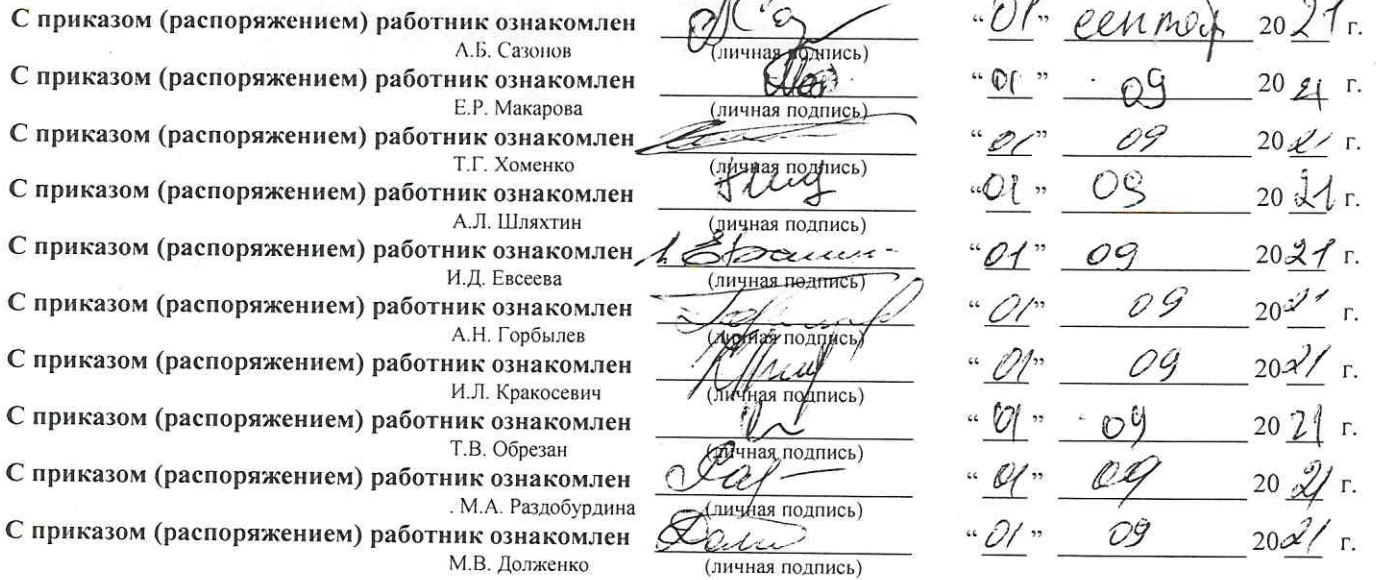 С приказом (распоряжением) работник ознакомлен “01” сентяб 2021 г.
А.Б. Сазонов (личная подпись)
С приказом (распоряжением) работник ознакомлен “01” 09 2021 г.
Е.Р. Макарова (личная подпись)
С приказом (распоряжением) работник ознакомлен “01” 09 2021 г.
Т.Г. Хоменко (личная подпись)
С приказом (распоряжением) работник ознакомлен “01” 09 2021 г.
А.Л. Шляхтин (личная подпись)
С приказом (распоряжением) работник ознакомлен “01” 09 2021 г.
И.Д. Евсеева (личная подпись)
С приказом (распоряжением) работник ознакомлен “01” 09 2021 г.
А.Н. Горбылев (личная подпись)
С приказом (распоряжением) работник ознакомлен “01” 09 2021 г.
И.Л. Кракосевич (личная подпись)
С приказом (распоряжением) работник ознакомлен “01” 09 2021 г.
Т.В. Обрезан (личная подпись)
С приказом (распоряжением) работник ознакомлен “01” 09 2021 г.
. М.А. Раздобурдина (личная подпись)
С приказом (распоряжением) работник ознакомлен “01” 09 2021 г.
М.В. Долженко (личная подпись)